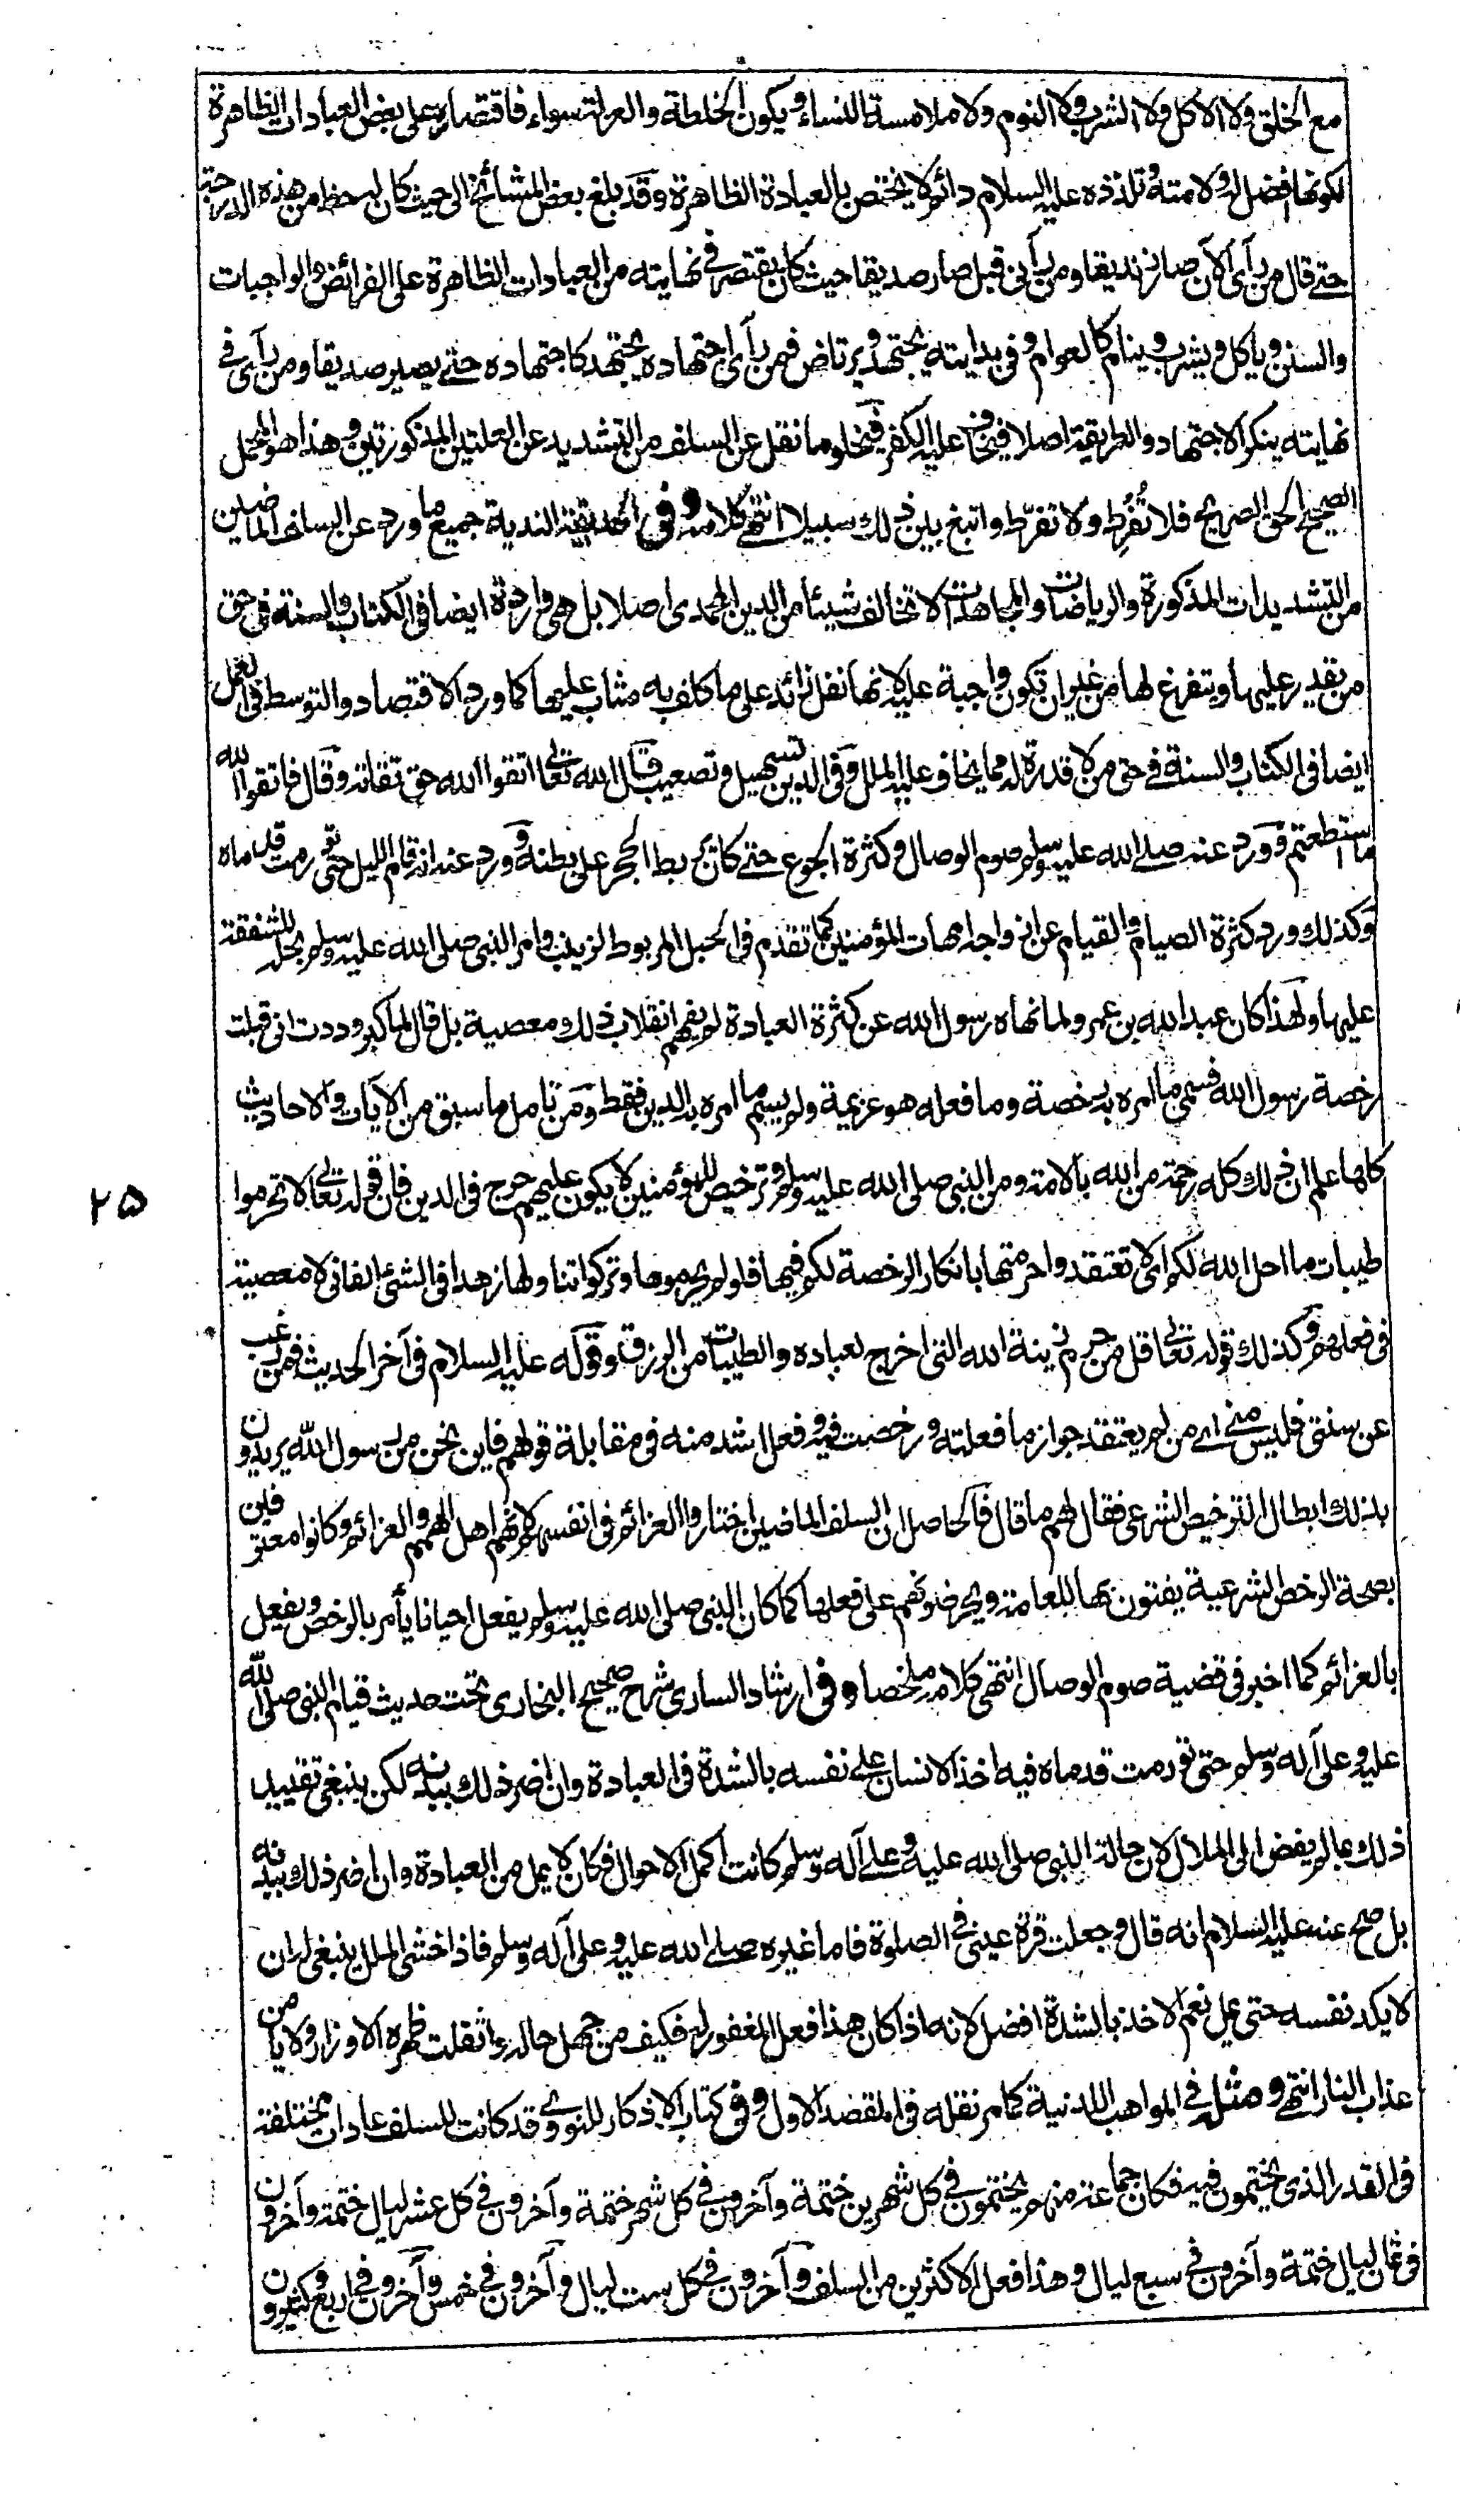 مع الخلق ولا الاكل ولا الشرب ولا النوم ولا ملامسة النساء ويكون الخلطة والعزلة سواء فاقتصاره على بعض العبادات الظاهرة
لكونها افضل له ولامته وتلذذه عليه السلام دائم لا يختص بالعبادة الظاهرة وقد بلغ بعض المشائخ الى حيث كان له حظ من هذه الدرجة
حتى قال من رآنى الآن صار زنديقا ومن رآنى قبل صار صديقا حيث كان يقتصر فى نهايته من العبادات الظاهرة على الفرائض والواجبات
والسنن وياكل ويشرب وينام كالعوام وفى بدايته يجتهد ويرتاض فمن رآى اجتهاده يجتهد كاجتهاده حتى يصير صديقا ومن رآى فى
نهايته ينكر الاجتهاد والطريقة اصلا فيخاف عليه الكفر فيحلو ما نقل عن السلف من التشديد عن العلتين المذكورتين وهذا هو المحمل
الصحيح الحق الصريح فلا تُفرِط ولا تفرّط وابتغ بين ذلك سبيلا انتهى كلامه وفى الحديقة الندية جميع ما ورد عن السلف الماضين
من التشديدات المذكورة والرياضات والمجاهدات لا تخالف شيئا من الدين المحمدى اصلا بل هى واردة ايضا فى الكتاب والسنة فى حق
من يقدر عليها ويتفرغ لها من غير ان تكون واجبة عليه لانها نفل زائد على ما كلف به مثاب عليها كما ورد الاقتصاد والتوسط فى العمل
ايضا فى الكتاب والسنة فى حق من لا قدرة له مما يخاف عليه الملل وفى الدين تسهيل وتصعيب قال الله تعالى اتقوا الله حق تقاته وقال فاتقوا الله
ما استطعتم وورد عنه صلى الله عليه وسلم صوم الوصال وكثرة الجوع حتى كان يربط الحجر على بطنه وورد عنه انه قام الليل حتى تورمت قدماه
وكذلك ورد كثرة الصيام والقيام عن ازواجه امهات المؤمنين كما تقدم فى الحبل المربوط لزينب وامر النبى صلى الله عليه وسلم بحله للشفقة
عليها ولهذا كان عبد الله بن عمرو لما نهاه رسول الله عن كثرة العبادة لم يفهم انقلاب ذلك ومعصية بل قال لما كبر وددت انى قبلت
رخصة رسول الله فسمى ما امره به رخصة وما فعله هو عزيمة ولم يسم ما امره به الدين فقط ومن تامل ما سبق من الآيات والاحاديث
كلها علم ان ذلك كله رحمة من الله بالامة ومن النبى صلى الله عليه وسلم وترخيص للمؤمنين لا يكون عليهم حرج فى الدين فان قوله تعالى لا تحرموا
طيبات ما احل الله لكم اى لا تعتقدوا حرمتها بانكار الرخصة لكم فيها فلو لم يحرموها وتركوا تناولها زهدا فى الشئ الفانى لا معصية
فى فعلهم وكذلك قوله تعالى قل من حرم زينة الله التى اخرج لعباده والطيبات من الرزق وقوله عليه السلام فى آخر الحديث فمن رغب
عن سنتى فليس منى اى من لم يعتقد جواز ما فعلته ورخصت فيه وفعل اشد منه فى مقابلة قولهم فاين نحن من رسول الله يريدون
بذلك ابطال الترخيص الشرعى فقال لهم ما قال فالحاصل ان السلف الماضين اختاروا العزائم فى انفسهم لانهم اهل الهمم والعزائم وكانوا معترفين
بصحة الرخص الشرعية يفتون بها للعامة ويحرضونهم على فعلها كما كان النبى صلى الله عليه وسلم يفعل احيانا يأمر بالرخص ويفعل
بالعزائم كما اخبر فى قضية صوم الوصال انتهى كلامه ملخصا وفى ارشاد السارى شرح صحيح البخارى تحت حديث قيام النبى صلى الله
عليه وعلى آله وسلم حتى تورمت قدماه فيه اخذ الانسان على نفسه بالشدة فى العبادة وان اضر ذلك ببدنه لكن ينبغى تقييد
ذلك بما لم يفض الى الملال لان حالة النبى صلى الله عليه وعلى آله وسلم كانت اكمل الاحوال فكان لا يمل من العبادة وان اضر ذلك ببدنه
بل صح عنه عليه السلام انه قال وجعلت قرة عينى فى الصلوة فاما غيره صلى الله عليه وعلى آله وسلم فاذا خشى الملل ينبغى له ان
لا يكد نفسه حتى يمل نعم الاخذ بالشدة افضل لانه اذا كان هذا فعل المغفور له فكيف من جهل حاله واثقلت ظهره الاوزار ولا يامن
عذاب النار انتهى ومثله فى المواهب اللدنية كما مر نقله فى المقصد الاول وفى كتاب الاذكار للنووى وقد كانت للسلف عادات مختلفة
فى القدر الذى يختمون فيه فكان جماعة منهم يختمون فى كل شهرين ختمة وآخرون فى كل شهر ختمة وآخرون فى كل عشر ليال ختمة وآخرون
فى ثمان ليال ختمة وآخرون فى سبع ليال وهذا فعل الاكثرين من السلف وآخرون فى كل ست ليال وآخرون فى خمس وآخرون فى اربع وكثيرون
٢٥